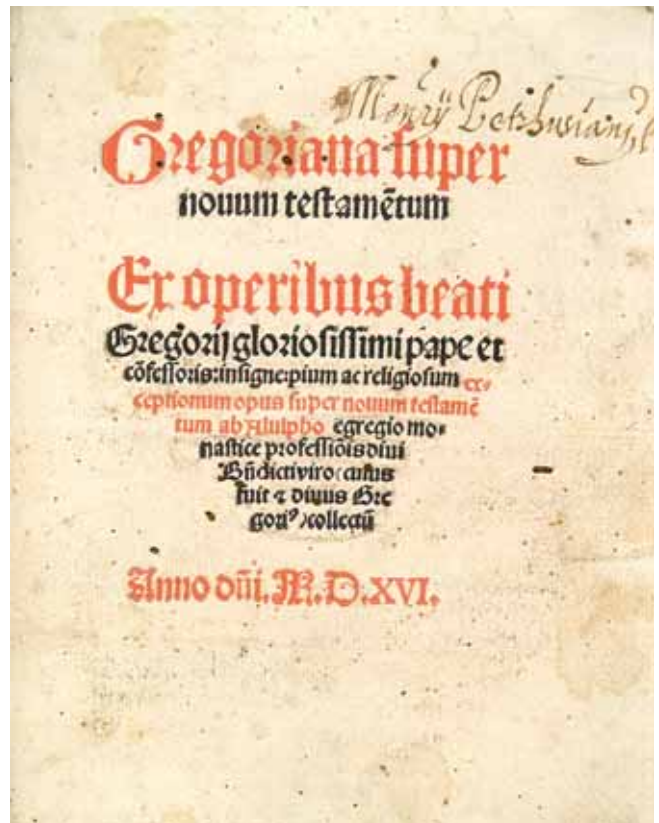 Gregoriana super
nouum testamētum
Ex operibus beati
Gregorij gloriosissimi pape et
cōfessoris: insigne: pium ac religiosum ex-
ceptionum opus super nouum testamē
tum ab Alulpho egregio mo-
nastice professiōis diui
Bn̄dicti viro (cuius
fuit ⁊ diuus Gre
goriꝰ) collectū
Anno dn̄i. M.D.XVI.